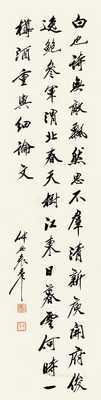 白也詩無敵飄然思不羣清新庾開府俊
逸鮑參軍渭北春天樹江東日暮雲何時一
樽酒重與細論文